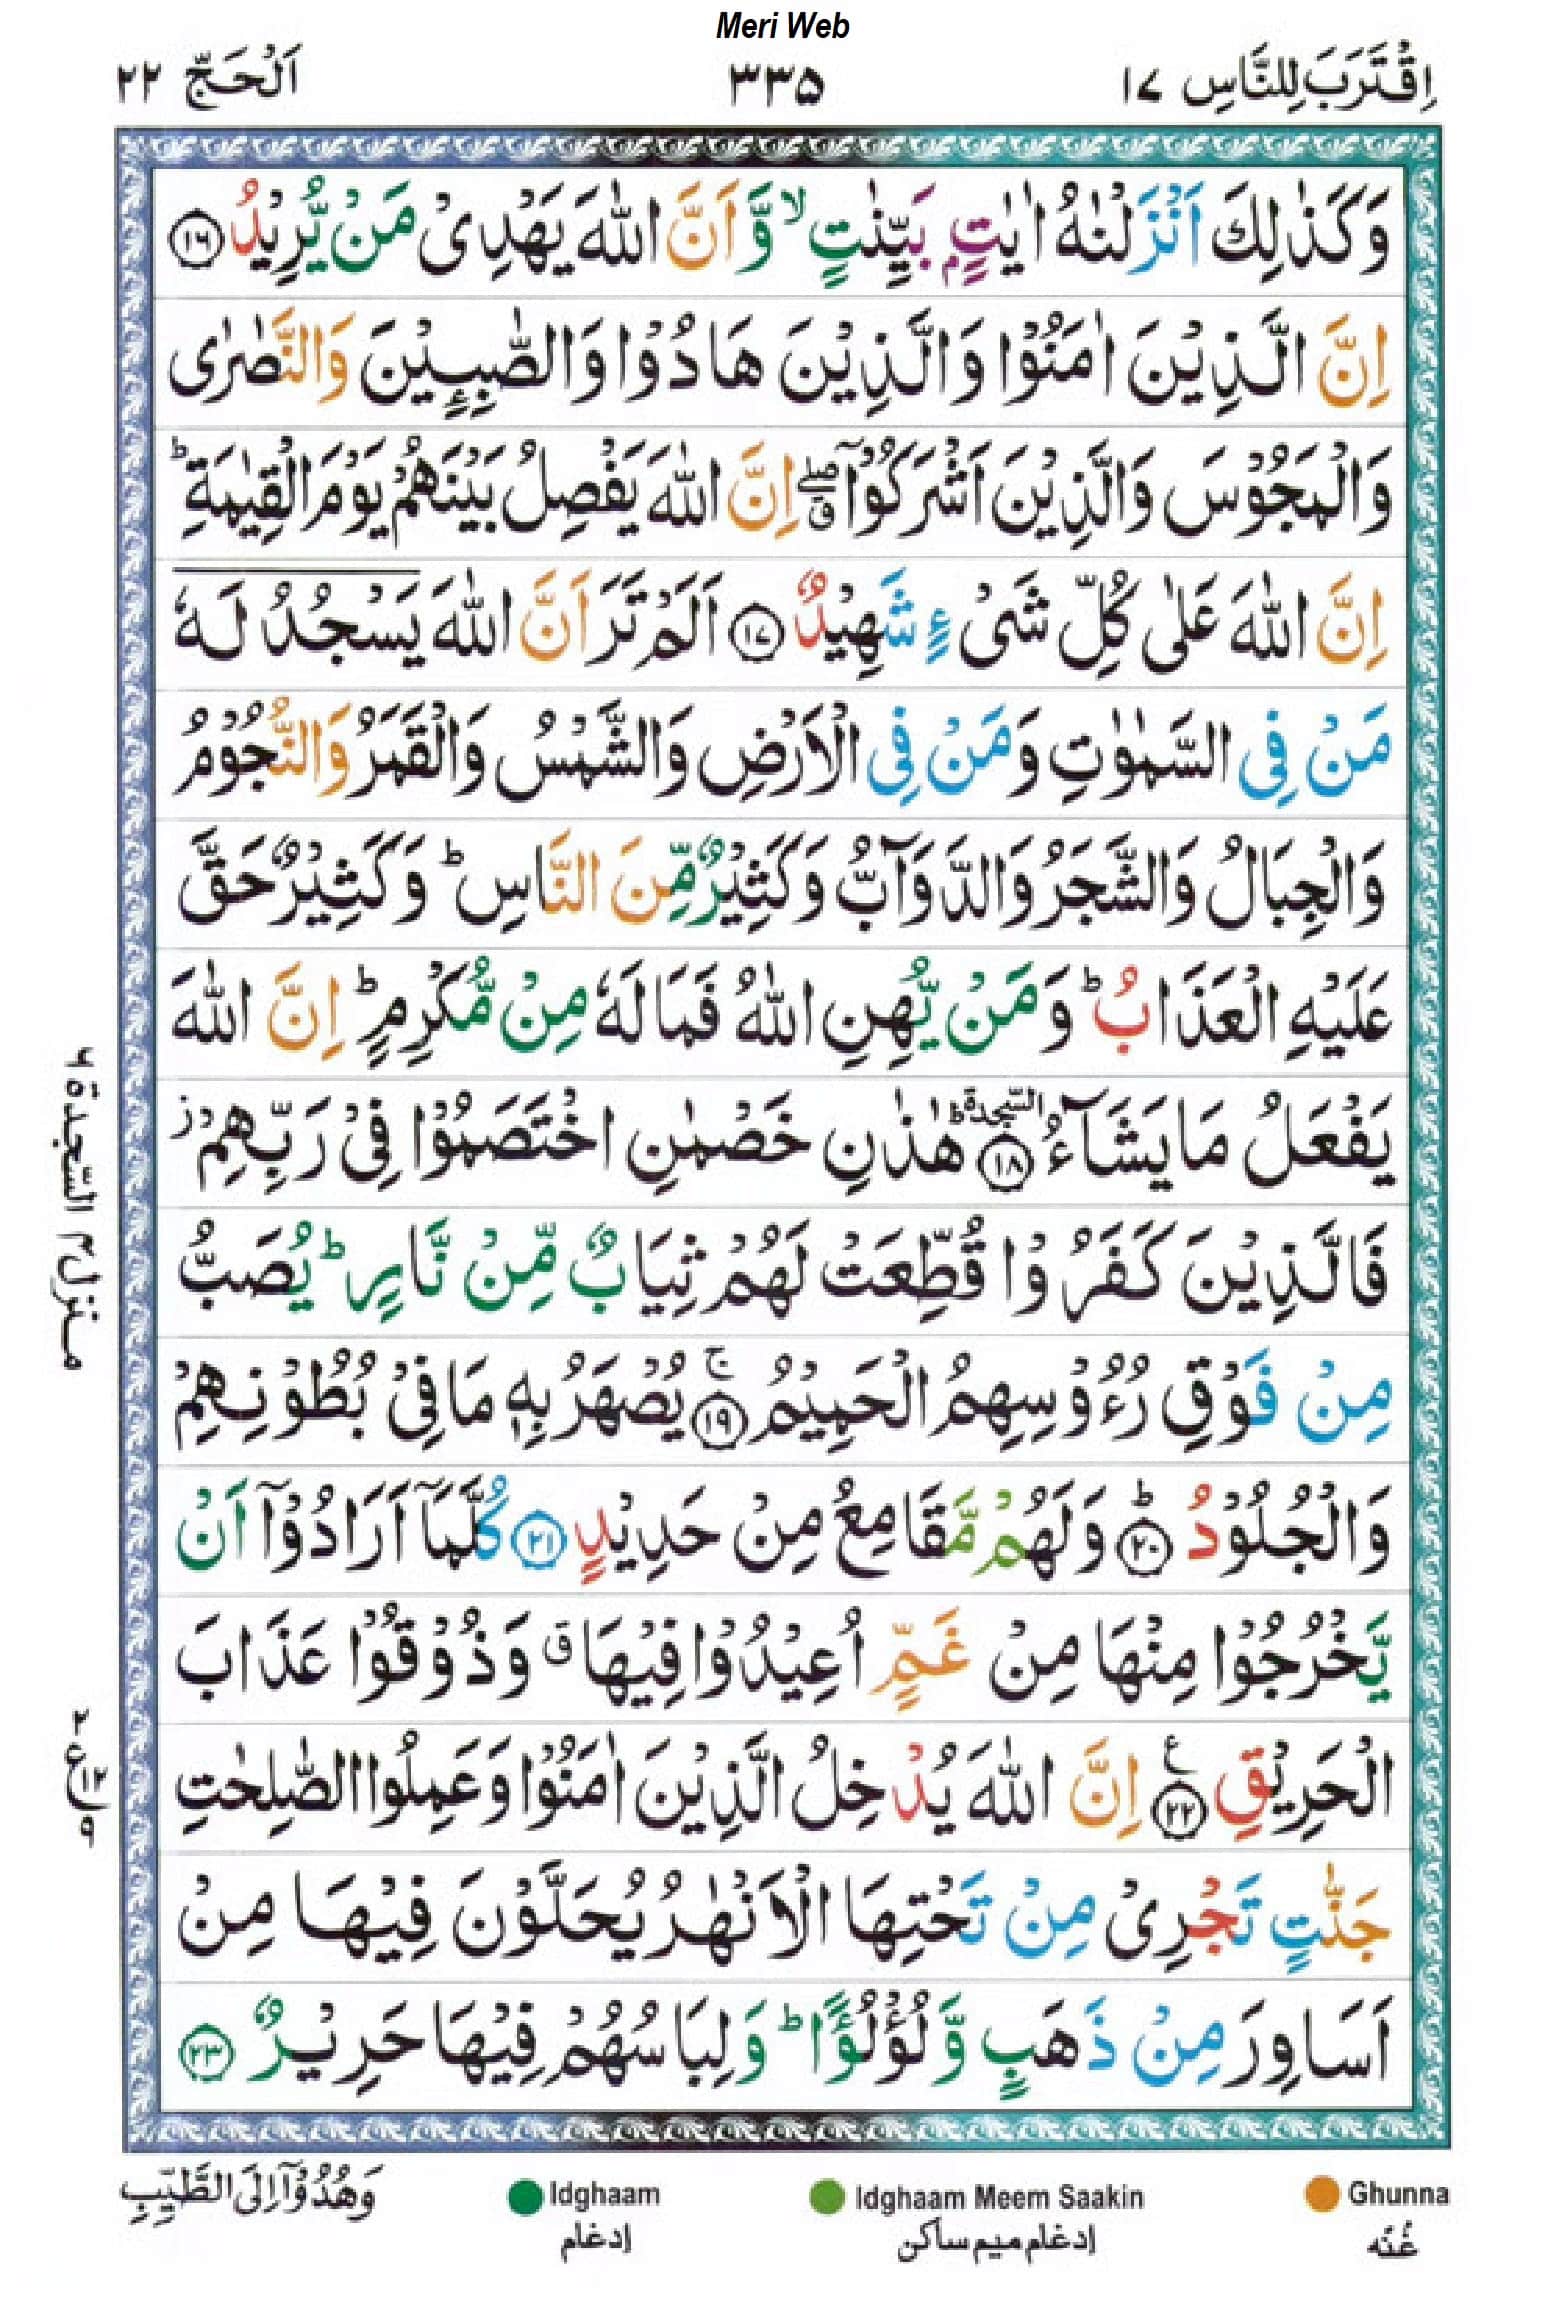 Meri Web
اِقْتَرَبَ لِلنَّاسِ ١٧
٣٣٥
اَلْحَجّ ٢٢
وَكَذٰلِكَ اَنْزَلْنٰهُ اٰيٰتٍۭ بَيِّنٰتٍ ۙ وَّ اَنَّ اللّٰهَ يَهْدِىْ مَنْ يُّرِيْدُ ۝١٦
اِنَّ الَّذِيْنَ اٰمَنُوْا وَالَّذِيْنَ هَادُوْا وَالصّٰبِـِٕيْنَ وَالنَّصٰرٰى
وَالْمَجُوْسَ وَالَّذِيْنَ اَشْرَكُوْۤا ۖۗ اِنَّ اللّٰهَ يَفْصِلُ بَيْنَهُمْ يَوْمَ الْقِيٰمَةِ ؕ
اِنَّ اللّٰهَ عَلٰى كُلِّ شَىْءٍ شَهِيْدٌ ۝١٧ اَلَمْ تَرَ اَنَّ اللّٰهَ يَسْجُدُ لَهٗ
مَنْ فِى السَّمٰوٰتِ وَمَنْ فِى الْاَرْضِ وَالشَّمْسُ وَالْقَمَرُ وَالنُّجُوْمُ
وَالْجِبَالُ وَالشَّجَرُ وَالدَّوَآبُّ وَكَثِيْرٌ مِّنَ النَّاسِ ؕ وَكَثِيْرٌ حَقَّ
عَلَيْهِ الْعَذَابُ ؕ وَمَنْ يُّهِنِ اللّٰهُ فَمَا لَهٗ مِنْ مُّكْرِمٍ ؕ اِنَّ اللّٰهَ
يَفْعَلُ مَا يَشَآءُ ؕ السّجدة ۝١٨ هٰذٰنِ خَصْمٰنِ اخْتَصَمُوْا فِىْ رَبِّهِمْ ز
فَالَّذِيْنَ كَفَرُوْا قُطِّعَتْ لَهُمْ ثِيَابٌ مِّنْ نَّارٍ ؕ يُصَبُّ
مِنْ فَوْقِ رُءُوْسِهِمُ الْحَمِيْمُ ۚ ۝١٩ يُصْهَرُ بِهٖ مَا فِىْ بُطُوْنِهِمْ
وَالْجُلُوْدُ ؕ ۝٢٠ وَلَهُمْ مَّقَامِعُ مِنْ حَدِيْدٍ ۝٢١ كُلَّمَاۤ اَرَادُوْۤا اَنْ
يَّخْرُجُوْا مِنْهَا مِنْ غَمٍّ اُعِيْدُوْا فِيْهَا ق وَذُوْقُوْا عَذَابَ
الْحَرِيْقِ ۝٢٢ ع اِنَّ اللّٰهَ يُدْخِلُ الَّذِيْنَ اٰمَنُوْا وَعَمِلُوا الصّٰلِحٰتِ
جَنّٰتٍ تَجْرِىْ مِنْ تَحْتِهَا الْاَنْهٰرُ يُحَلَّوْنَ فِيْهَا مِنْ
اَسَاوِرَ مِنْ ذَهَبٍ وَّلُؤْلُؤًا ؕ وَلِبَاسُهُمْ فِيْهَا حَرِيْرٌ ۝٢٣
منزل ٤ السّجدة ٦
٢ ع ١٢ ٩
Ghunna
غُنّه
Idghaam Meem Saakin
إدغام ميم ساكن
Idghaam
إدغام
وَهُدُوْۤا اِلَى الطَّيِّبِ